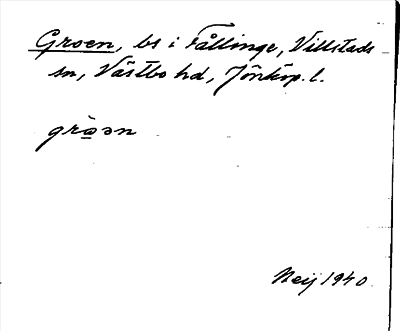 Groen, bs i Fållinge, Villstads
sn, Västbo hd, Jönköp. l.
grὰ̠ən
Neij 1940